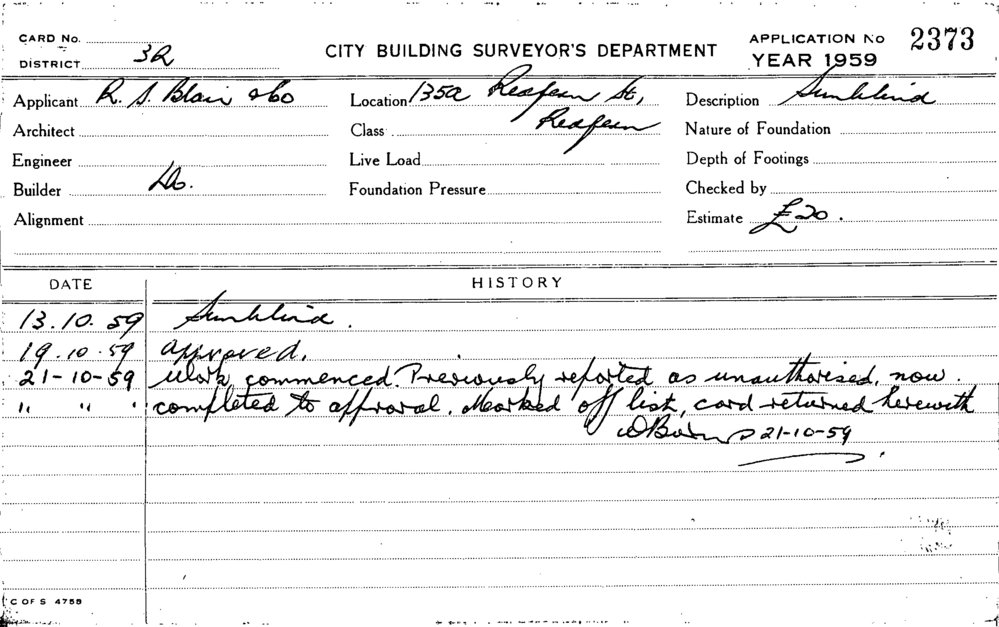 CARD No. CITY BUILDING SURVEYOR'S DEPARTMENT APPLICATION No 2373
DISTRICT 3R YEAR 1959
Applicant R. S. Blair & Co Location 135a Redfern St, Description Sunblind
Architect Class Redfern Nature of Foundation
Engineer Live Load Depth of Footings
Builder Do. Foundation Pressure Checked by
Alignment Estimate £20.
DATE HISTORY
13.10.59 Sunblind.
19.10.59 approved.
21-10-59 Work commenced. Previously reported as unauthorised, now
" " " completed to approval. Marked off list, card returned herewith
21-10-59
C OF S 4758